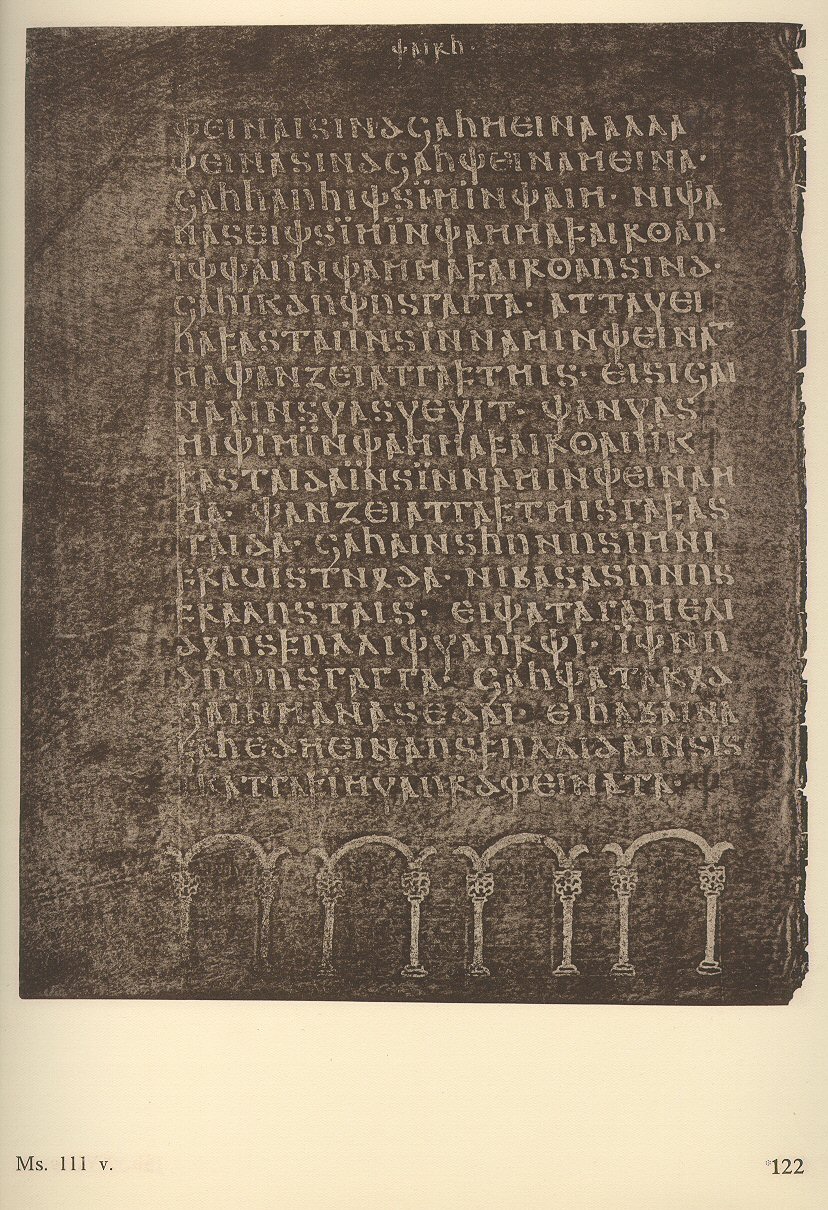 𐌸𐌰𐌹𐍂𐌷·
𐌸𐌴𐌹𐌽𐌰𐌹𐍃𐌹𐌽𐌳𐌾𐌰𐌷𐌼𐌴𐌹𐌽𐌰𐌰𐌻𐌻𐌰
𐌸𐌴𐌹𐌽𐌰𐍃𐌹𐌽𐌳𐌾𐌰𐌷𐌸𐌴𐌹𐌽𐌰𐌼𐌴𐌹𐌽𐌰·
𐌾𐌰𐌷𐌷𐌰𐌿𐌷𐌹𐌸𐍃𐌹̈𐌼𐌹̈𐌽𐌸𐌰𐌹𐌼· 𐌽𐌹𐌸𐌰
𐌽𐌰𐍃𐌴𐌹𐌸𐍃𐌹̈𐌼𐌹̈𐌽𐌸𐌰𐌼𐌼𐌰𐍆𐌰𐌹𐍂𐍈𐌰𐌿·
𐌹̈𐌸𐌸𐌰𐌹𐌹̈𐌽𐌸𐌰𐌼𐌼𐌰𐍆𐌰𐌹𐍂𐍈𐌰𐌿𐍃𐌹𐌽𐌳·
𐌾𐌰𐌷𐌹̈𐌺𐌳𐌿𐌸𐌿𐍃𐌲𐌰𐌲𐌲𐌰· 𐌰𐍄𐍄𐌰𐍅𐌴𐌹
𐌷𐌰𐍆𐌰𐍃𐍄𐌰𐌹𐌹̈𐌽𐍃𐌹̈𐌽𐌽𐌰𐌼𐌹𐌽𐌸𐌴𐌹𐌽𐌰̅
𐌼𐌰𐌸𐌰𐌽𐌶𐌴𐌹𐌰𐍄𐌲𐌰𐍆𐍄𐌼𐌹𐍃· 𐌴𐌹𐍃𐌹𐌾𐌰𐌹
𐌽𐌰𐌰𐌹𐌽𐍃𐍅𐌰𐍃𐍅𐌴𐍅𐌹𐍄· 𐌸𐌰𐌽𐍅𐌰𐍃
𐌼𐌹𐌸𐌹̈𐌼𐌹̈𐌽𐌸𐌰𐌼𐌼𐌰𐍆𐌰𐌹𐍂𐍈𐌰𐌿𐌹̈𐌺
𐍆𐌰𐍃𐍄𐌰𐌹𐌳𐌰𐌹̈𐌽𐍃𐌹̈𐌽𐌽𐌰𐌼𐌹𐌽𐌸𐌴𐌹𐌽𐌰𐌼
𐌼𐌰· 𐌸𐌰𐌽𐌶𐌴𐌹𐌰𐍄𐌲𐌰𐍆𐍄𐌼𐌹𐍃𐌲𐌰𐍆𐌰𐍃
𐍄𐌰𐌹𐌳𐌰· 𐌾𐌰𐌷𐌰𐌹𐌽𐍃𐌷𐌿𐌽𐌿𐍃𐌹̈𐌼𐌽𐌹
𐍆𐍂𐌰𐌵𐌹𐍃𐍄𐌽𐍉𐌳𐌰· 𐌽𐌹𐌱𐌰𐍃𐌰𐍃𐌿𐌽𐌿𐍃
𐍆𐍂𐌰𐌻𐌿𐍃𐍄𐌰𐌹𐍃· 𐌴𐌹𐌸𐌰𐍄𐌰𐌲𐌰𐌼𐌴𐌻𐌹
𐌳𐍉𐌿𐍃𐍆𐌿𐌻𐌻𐌹𐌸𐍅𐌰𐌿𐍂𐌸𐌹· 𐌹̈𐌸𐌽𐌿
𐌳𐌿𐌸𐌿𐍃𐌲𐌰𐌲𐌲𐌰· 𐌾𐌰𐌷𐌸𐌰𐍄𐌰𐍂𐍉𐌳
𐌾𐌰𐌹𐌽𐌼𐌰𐌽𐌰𐍃𐌴𐌳𐌰𐌹· 𐌴𐌹𐌷𐌰𐌱𐌰𐌹𐌽𐌰
𐍆𐌰𐌷𐌴𐌳𐌼𐌴𐌹𐌽𐌰𐌿𐍃𐍆𐌿𐌻𐌻𐌹𐌳𐌰𐌹𐌽𐍃𐌹𐍃
𐌹̈𐌺𐌰𐍄𐌲𐌰𐍆𐌹̈𐌼𐍅𐌰𐌿𐍂𐌳𐌸𐌴𐌹𐌽𐌰𐍄𐌰·
Ms. 111 v.
*122